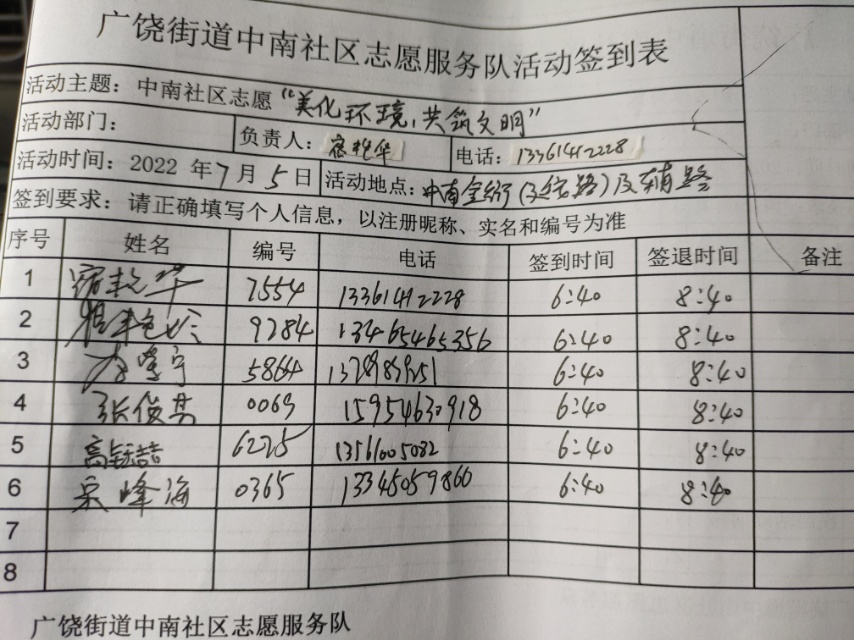 广饶街道中南社区志愿服务队活动签到表
活动主题：中南社区志愿“美化环境，共筑文明”
活动部门： 负责人：宿艳华 电话：13361412228
活动时间：2022 年7月5日 活动地点：中南金街(及辅路
签到要求：请正确填写个人信息，以注册昵称、实名和编号为准
序号 姓名 编号 电话 签到时间 签退时间 备注
1 宿艳华 7554 13361412228 6:40 8:40
2 9284 13465465356 6:40 8:40
3 5864 6:40 8:40
4 张俊其 0069 15954630918 6:40 8:40
5 6225 13561005032 6:40 8:40
6 峰海 0365 13345059866 6:40 8:40
7
8
广饶街道中南社区志愿服务队